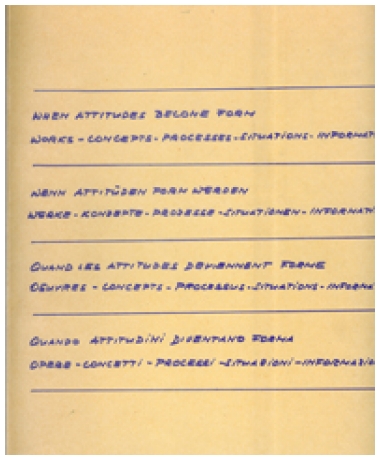 WHEN ATTITUDES BECOME FORM
WORKS - CONCEPTS - PROCESSES - SITUATIONS - INFORMAT
WENN ATTITÜDEN FORM WERDEN
WERKE - KONZEPTE - PROZESSE - SITUATIONEN - INFORMATI
QUAND LES ATTITUDES DEVIENNENT FORME
OEUVRES - CONCEPTS - PROCESSUS - SITUATIONS - INFORMA
QUANDO ATTITUDINI DIVENTANO FORMA
OPERE - CONCETTI - PROCESSI - SITUAZIONI - INFORMAZIO